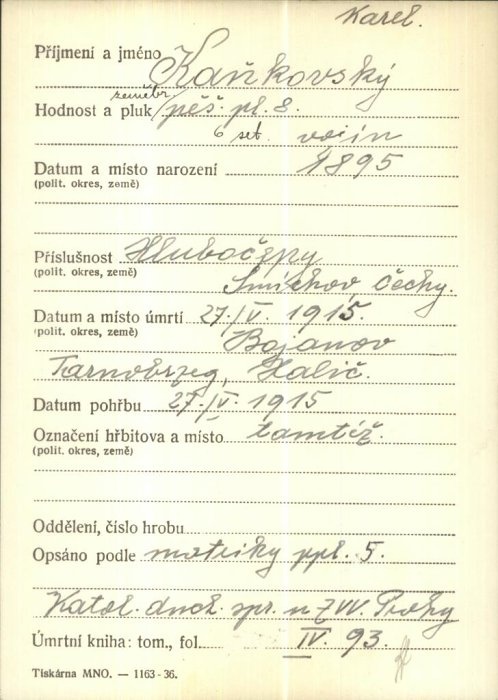 Karel.
Příjmení a jméno Kaňkovský
zeměbr.
Hodnost a pluk pěš. pl. 8.
6 set. vojín
Datum a místo narození 1895
(polit. okres, země)
Příslušnost Hlubočepy
(polit. okres, země)
Smíchov, Čechy.
Datum a místo úmrtí 27./IV. 1915.
(polit. okres, země)
Bojanov
Tarnobrzeg, Halič.
Datum pohřbu 27./IV. 1915
Označení hřbitova a místo tamtéž.
(polit. okres, země)
Oddělení, číslo hrobu
Opsáno podle matriky ppl. 5.
Katol. duch. spr. u ZVV. Prahy
Úmrtní kniha: tom., fol. IV. 93.
Tiskárna MNO. — 1163-36.